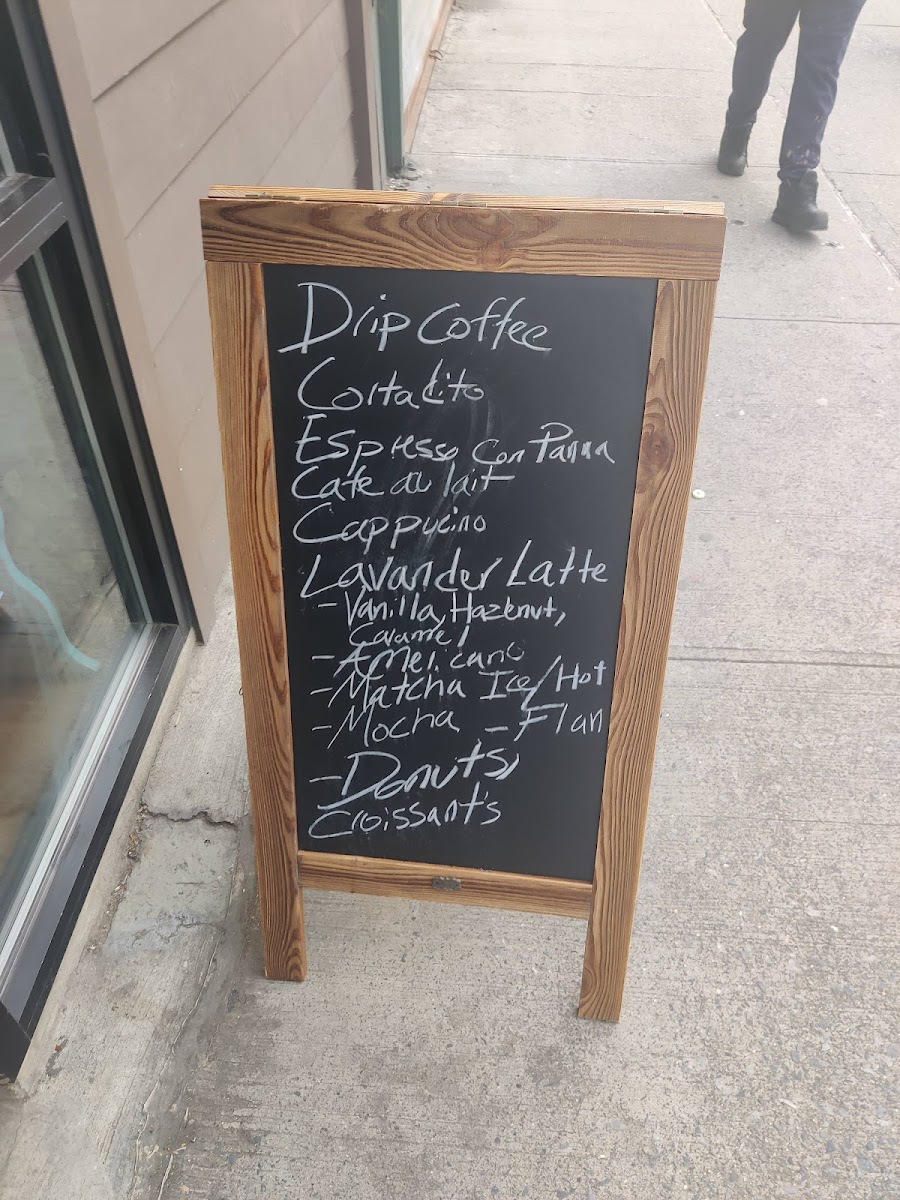 Drip Coffee
Cortadito
Espresso Con Panna
Cafe au lait
Cappucino
Lavander Latte
- Vanilla, Hazelnut,
Caramel
- Americano
- Matcha Ice/Hot
- Mocha - Flan
- Donuts,
Croissant's